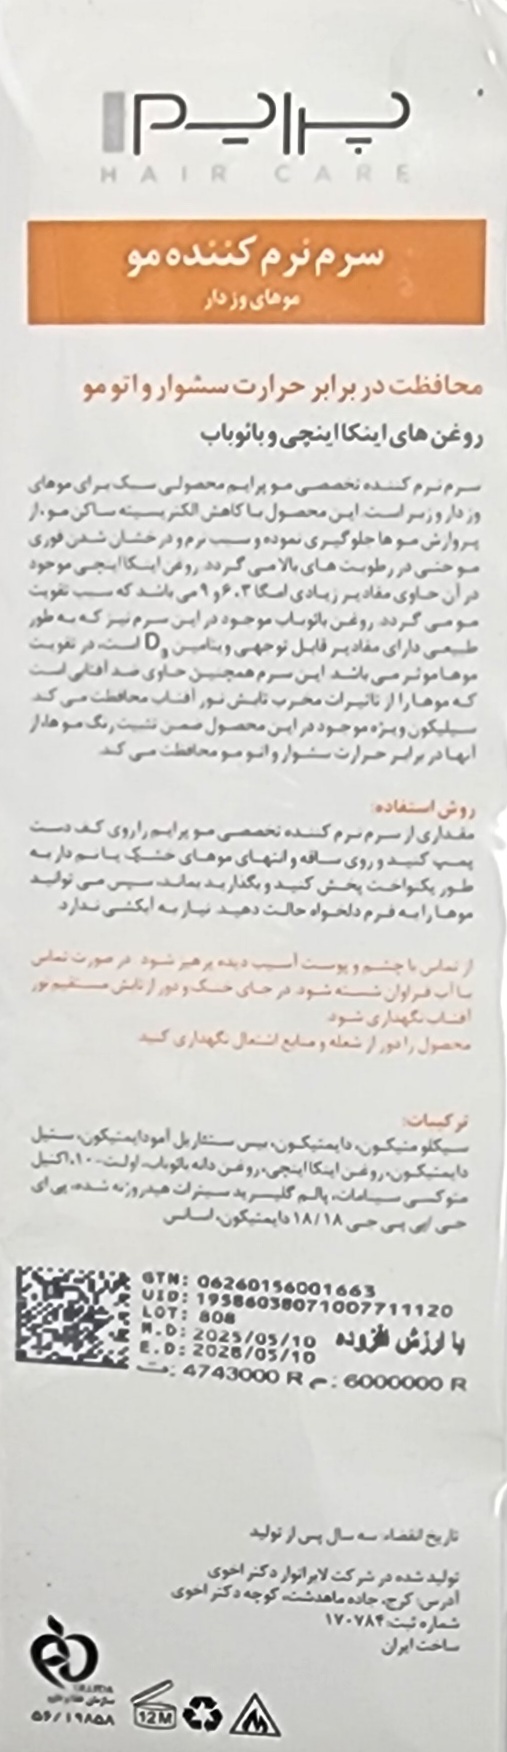 پرایم
HAIR CARE
سرم نرم کننده مو
موهای وزدار
محافظت در برابر حرارت سشوار و اتو مو
روغن های اینکا اینچی و بائوباب
سرم نرم کننده تخصصی مو پرایم محصولی سبک برای موهای
وز دار و زبر است. این محصول با کاهش الکتریسیته ساکن مو، از
پروازش موها جلوگیری نموده و سبب نرم و درخشان شدن فوری
مو حتی در رطوبت های بالا می گردد. روغن اینکا اینچی موجود
در آن حاوی مقادیر زیادی امگا ۳، ۶ و ۹ می باشد که سبب تقویت
مو می گردد. روغن بائوباب موجود در این سرم نیز که به طور
طبیعی دارای مقادیر قابل توجهی ویتامین D₃ است، در تقویت
موها موثر می باشد. این سرم همچنین حاوی ضد آفتابی است
که موها را از تاثیرات مخرب تابش نور آفتاب محافظت می کند.
سیلیکون ویژه موجود در این محصول ضمن تثبیت رنگ موها، از
آنها در برابر حرارت سشوار و اتو مو محافظت می کند.
روش استفاده:
مقداری از سرم نرم کننده تخصصی مو پرایم را روی کف دست
پمپ کنید و روی ساقه و انتهای موهای خشک یا نم دار به
طور یکنواخت پخش کنید و بگذارید بماند، سپس می توانید
موها را به فرم دلخواه حالت دهید. نیاز به آبکشی ندارد.
از تماس با چشم و پوست آسیب دیده پرهیز شود. در صورت تماس
با آب فراوان شسته شود. در جای خشک و دور از تابش مستقیم نور
آفتاب نگهداری شود.
محصول را دور از شعله و منابع اشتعال نگهداری کنید.
ترکیبات:
سیکلو متیکون، دایمتیکون، بیس ستئاریل آمودایمتیکون، ستیل
دایمتیکون، روغن اینکا اینچی، روغن دانه بائوباب، اولت-۱۰، اکتیل
متوکسی سینامات، پالم گلیسرید سیترات هیدروژنه شده، پی ای
جی/پی پی جی ۱۸/۱۸ دایمتیکون، اسانس
GTN: 06260156001663
UID: 19586038071007711120
LOT: 808
M.D: 2025/05/10
E.D: 2028/05/10
با ارزش افزوده
ت: 4743000 R م: 6000000 R
تاریخ انقضاء: سه سال پس از تولید
تولید شده در شرکت لابراتوار دکتر اخوی
آدرس: کرج، جاده ماهدشت، کوچه دکتر اخوی
شماره ثبت: ۱۷۰۷۸۴
ساخت ایران
سازمان غذا و دارو
۵۶/۱۹۸۵۸
12M